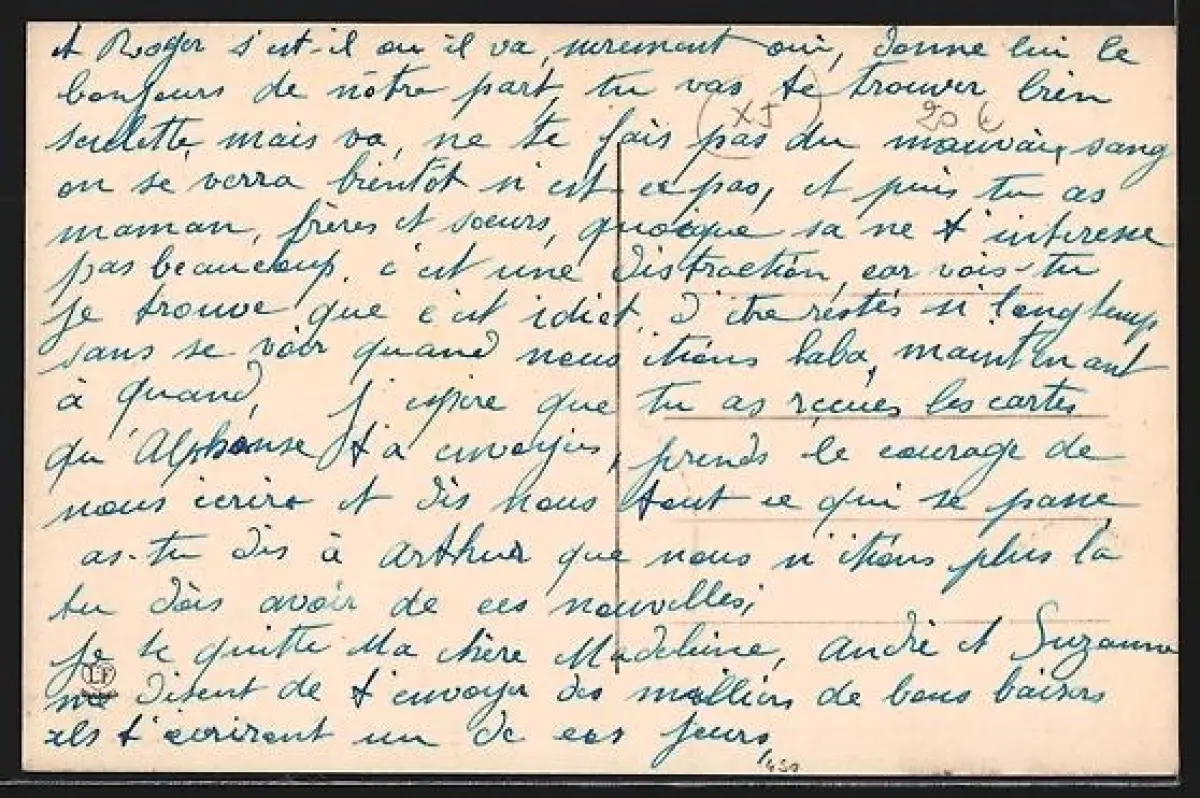 et Roger s'est-il ou il va, surement oui, donne lui le
bonjours de nôtre part, tu vas te trouver bien
(XJ) 20 €
seulette, mais va, ne te fais pas du mauvais sang
on se verra bientôt n'est ce pas, et puis tu as
maman, frères et soeurs, quoique sa ne t'interesse
pas beaucoup, c'est une distraction, car vois-tu
je trouve que c'est idiot, d'être restés si longtemp
sans se voir quand nous étions laba, maintenant
à quand, j'espère que tu as reçues les cartes
qu'Alphonse t'a envoyés, prends le courage de
nous écrire et dis nous tout ce qui se passe
as-tu dis à Arthur que nous n'étions plus là
tu dois avoir de ces nouvelles,
Je te quitte Ma chère Madeleine, André et Suzanne
LF
me disent de t'envoyer des milliers de bons baisers
ils t'écriront un de ces jours,